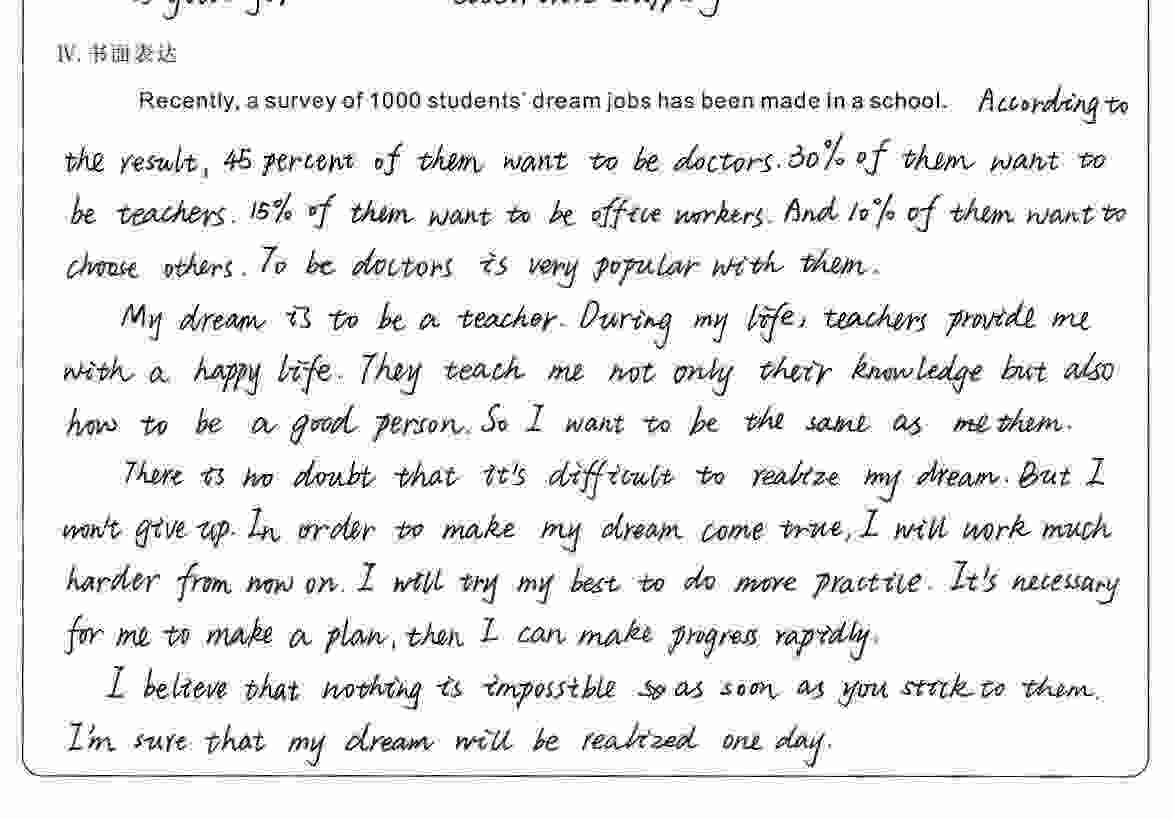 IV. 书面表达
Recently, a survey of 1000 students' dream jobs has been made in a school. According to
the result, 45 percent of them want to be doctors. 30% of them want to
be teachers. 15% of them want to be office workers. And 10% of them want to
choose others. To be doctors is very popular with them.
My dream is to be a teacher. During my life, teachers provide me
with a happy life. They teach me not only their knowledge but also
how to be a good person. So I want to be the same as me them.
There is no doubt that it's difficult to realize my dream. But I
won't give up. In order to make my dream come true, I will work much
harder from now on. I will try my best to do more practice. It's necessary
for me to make a plan, then I can make progress rapidly.
I believe that nothing is impossible so as soon as you stick to them.
I'm sure that my dream will be realized one day.